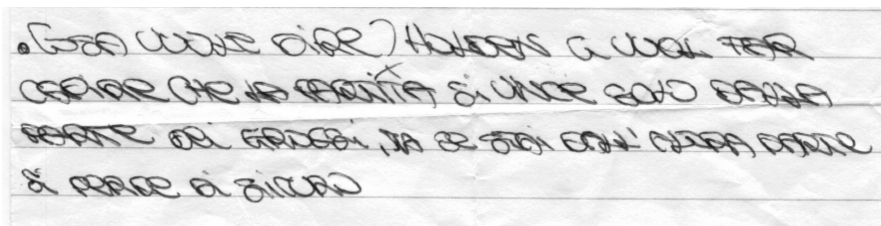 • (COSA VUOLE DIRE) HOLDEN CI VUOL FAR
CAPIRE CHE LA PARTITA SI VINCE SOLO DALLA
PARTE DEI GROSSI, MA SE STAI DALL' ALTRA PARTE
SI PERDE DI SICURO